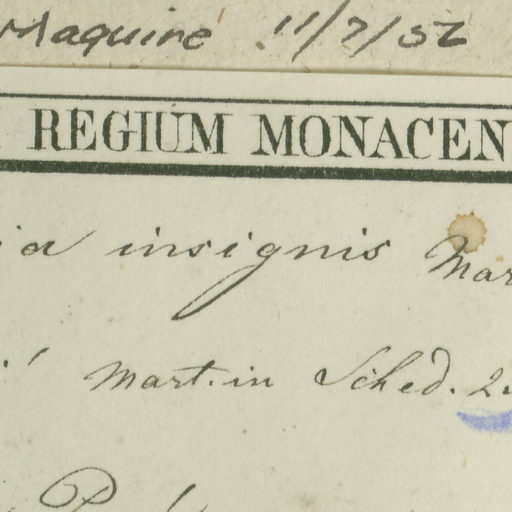 Maguire 11/7/52
REGIUM MONACEN
ia insignis Mar
Mart. in Sched.